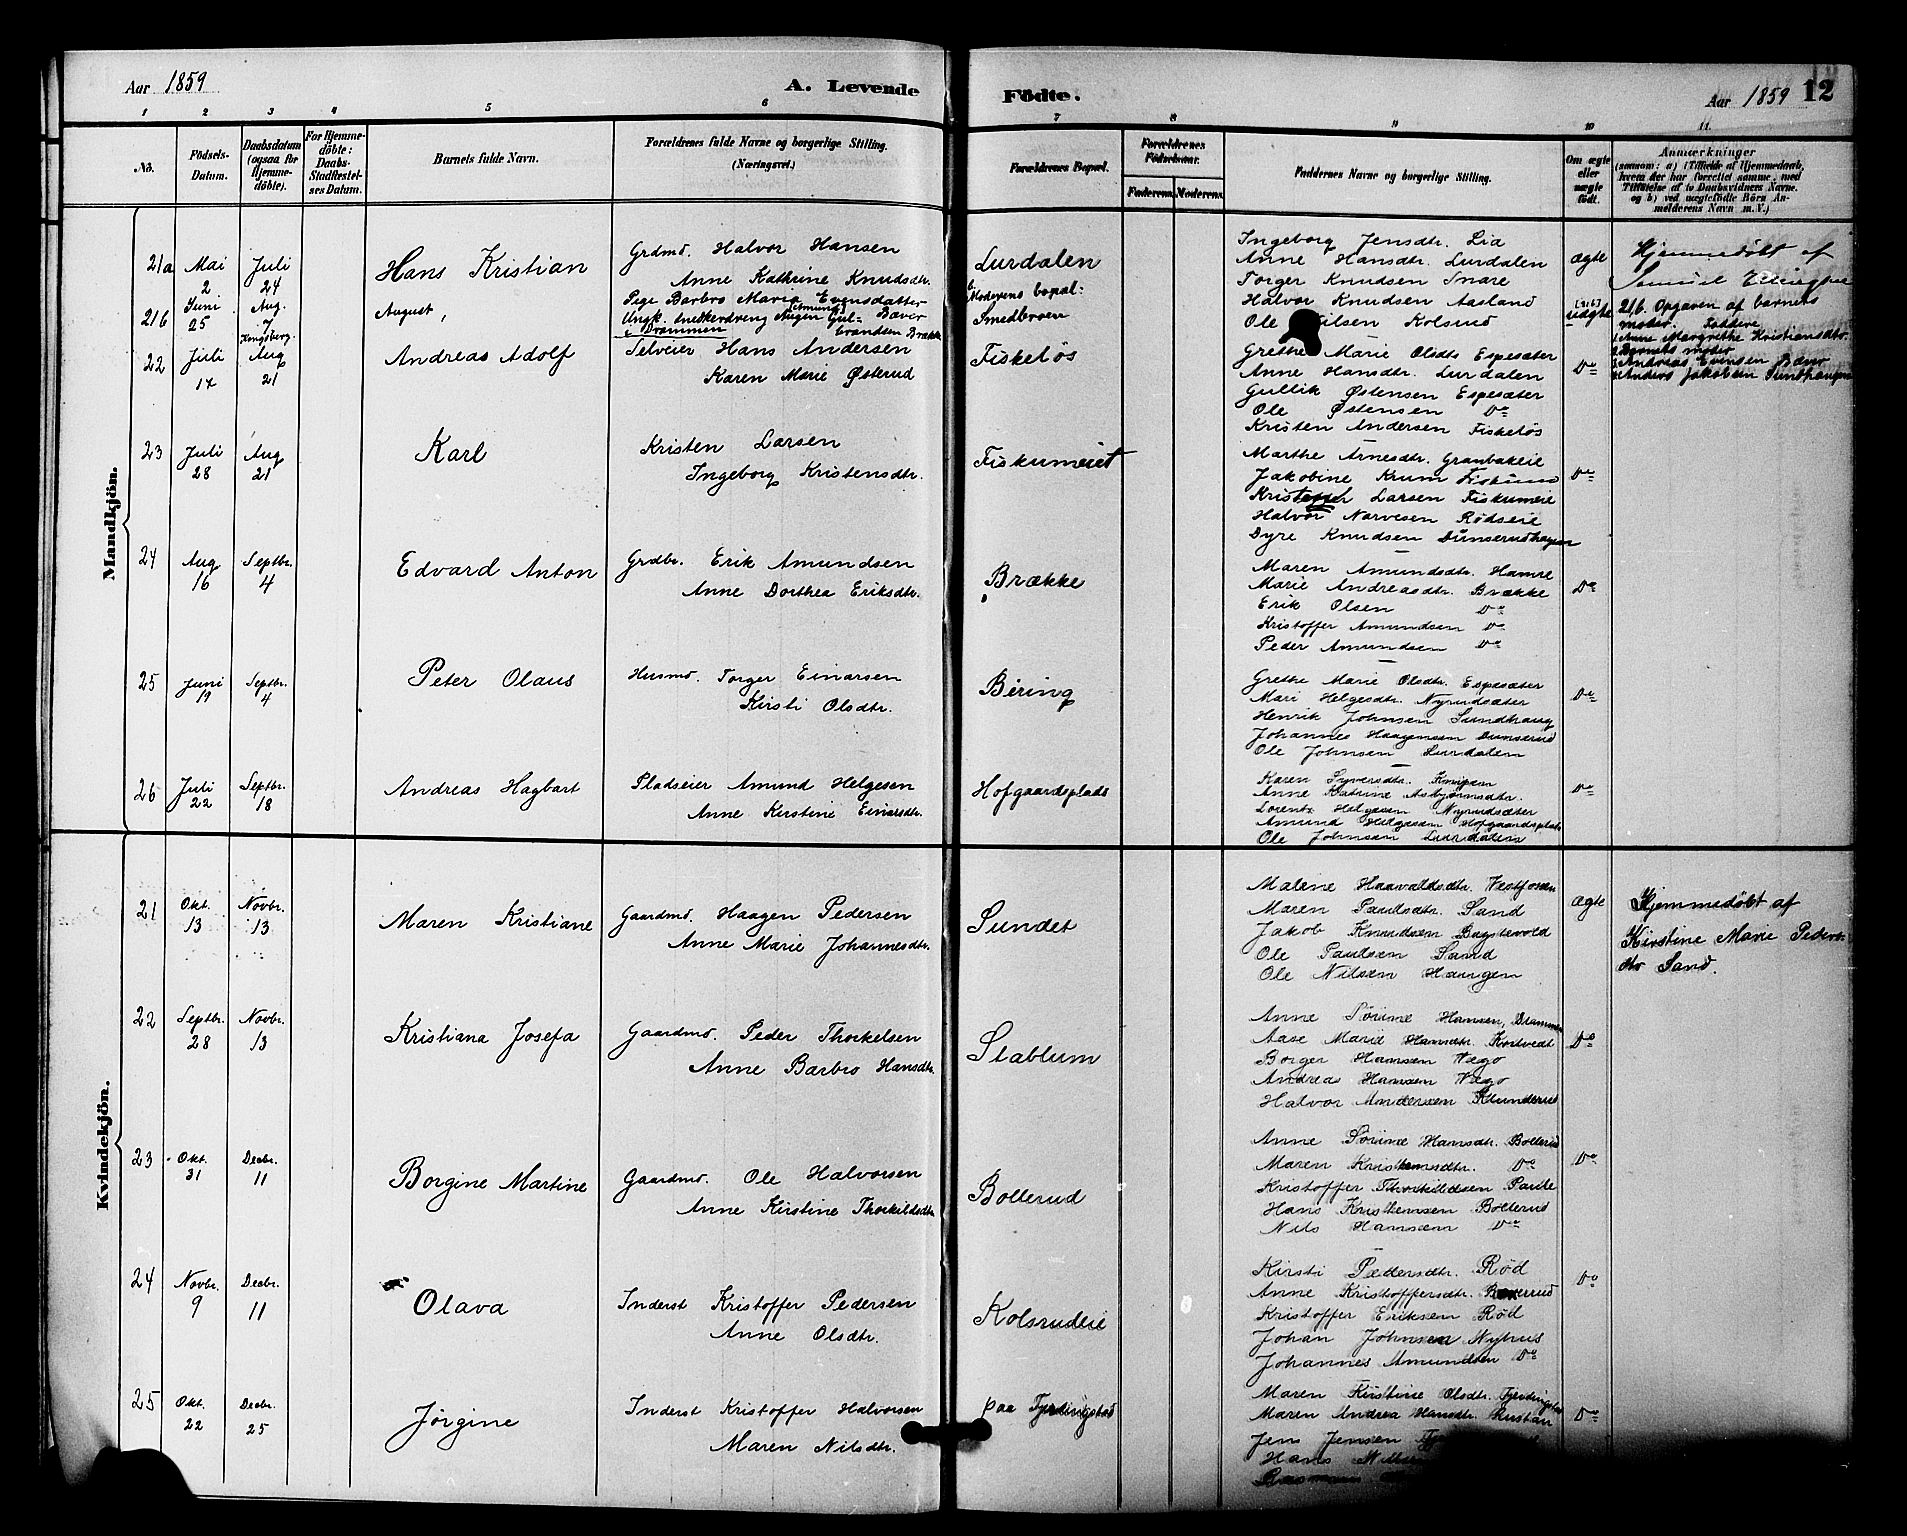 Aar 1859
A. Levende
Födte.
Aar 1859 12
1 2 3 4 5 6 7 8 9 10 11.
No.
Födsels-Datum.
Daabsdatum (ogsaa for Hjemme-döbte).
For Hjemme-döbte: Daabs-Stadfæstelses Datum.
Barnets fulde Navn.
Forældrenes fulde Navne og borgerlige Stilling. (Næringsvei.)
Forældrenes Bopæl.
Forældrenes Födselsaar.
Faderens. Moderens.
Faddernes Navne og borgerlige Stilling.
Om ægte eller uægte födt.
Anmærkninger
(saasom: a) i Tilfælde af Hjemmedaab, hvem der har forrettet samme, med Tilföielse af to Daabsvidners Navne, og b) ved uægtefödte Börn Anmelderens Navn m. V.)
Mandkjön.
21a Mai 2 Juli 24 Hans Kristian Grdmd. Halvor Hansen
Anne Kathrine Knudsdtr.
Lurdalen
Ingeborg Jensdtr. Lia
Anne Hansdtr. Lurdalen
Torger Knudsen Snare
Halvor Knudsen Aasland
Ole Nilsen Kolsrud
ægte
Hjemmedøbt af
Samuel
21b Juni 25 Aug. 7 Kongsberg. August,
Pige Barbro Maria Evensdatter
Ungk. Snedkerdreng Augen Gulbrandsen Brække
Bæver
i Drammen
Moderens bopæl:
Smedbroen
[21b] uægte
21b. Opgaven af barnets
moder. Faddere
1 Anne Margrethe Kristiansdtr.
2 Barnets moder
3 Andreas Evensen Bæver
4 Anders Jakobsen Sundhaugen
22 Juli 17 Aug 21 Andreas Adolf Selveier Hans Andersen
Karen Marie Østerud
Fiskeløs
Grethe Marie Olsdtr Espesæter
Anne Hansdtr. Lurdalen
Gullik Østensen Espesæter
Ole Østensen Do
Kristen Andersen Fiskeløs
Do
23 Juli 28 Aug 21 Karl Kristen Larsen
Ingeborg Kristensdtr.
Fiskumeiet
Marthe Arnesdtr. Granbakeie
Jakobine Krum Fiskum
Kristoffer Larsen Fiskumeie
Halvor Narvesen Rødseie
Dyre Knudsen Dunserudhagen
Do
24 Aug 16 Septbr. 4 Edvard Anton Grdbr. Erik Amundsen
Anne Dorthea Eriksdtr.
Brække
Maren Amundsdtr. Hamre
Marie Andreasdtr. Brække
Erik Olsen Do
Kristoffer Amundsen Do
Peder Amundsen Do
Do
25 Juni 19 Septbr. 4 Peter Olaus Husmd. Torger Einarsen
Kirsti Olsdtr.
Bering
Grethe Marie Olsdtr. Espesæter
Mari Helgesdtr. Nyrudsæter
Henrik Johnsen Sundhaug
Johannes Haagensen Dunserud
Ole Johnsen Lurdalen
Do
26 Juli 22 Septbr. 18 Andreas Hagbart Pladseier Amund Helgesen
Anne Kirstine Einarsdtr.
Hofgaardsplads
Karen Syversdtr.
Anne Katrine Asbjørnsdtr.
Lorentz Helgesen Nyrudsæter
Amund Helgesen Hofgaardsplads
Ole Johnsen Lurdalen
Do
Kvindekjön.
21 Okt. 13 Novbr. 13 Maren Kristiane Gaardmd. Haagen Pedersen
Anne Marie Johannesdtr.
Sundet
Malene Haavaldsdtr. Vestfossen
Maren Paulsdtr. Sand
Jakob Knudsen Bagstevold
Ole Paulsen Sand
Ole Nilsen Haugen
ægte
Hjemmedøbt af
Kirstine Marie Peders-
dtr Sand.
22 Septbr. 28 Novbr. 13 Kristiana Josefa Gaardmd. Peder Thorkelsen
Anne Barbro Hansdtr.
Stablum
Anne Sørine Hansen, Drammen
Aase Marie Hansdtr. Kortvedt
Borger Hansen Wego
Andreas Hansen Wego
Halvor Andersen Klunderud
Do
23 Okt. 31 Decbr. 11 Borgine Martine Gaardmd. Ole Halvorsen
Anne Kirstine Thorkildsdtr.
Bollerud
Anne Sørine Hansdtr. Bollerud
Maren Kristensdtr. Do
Kristoffer Thorkildsen Parite
Hans Kristensen Bollerud
Nils Hansen Do
Do
24 Novbr. 9 Decbr. 11 Olava Inderst Kristoffer Pedersen
Anne Olsdtr.
Kolsrudeie
Kirsti Pedersdtr. Rød
Anne Kristoffersdtr.
Kristoffer Eriksen Rød
Johan Johnsen Nyhus
Johannes Amundsen Do
Do
25 Okt. 22 Decbr. 25 Jørgine Inderst Kristoffer Halvorsen
Maren Nilsdtr.
paa Tjendingstad
Maren Kirstine Olsdtr.
Maren Andrea Hansdtr. Rustan
Jens Jensen
Hans
Do